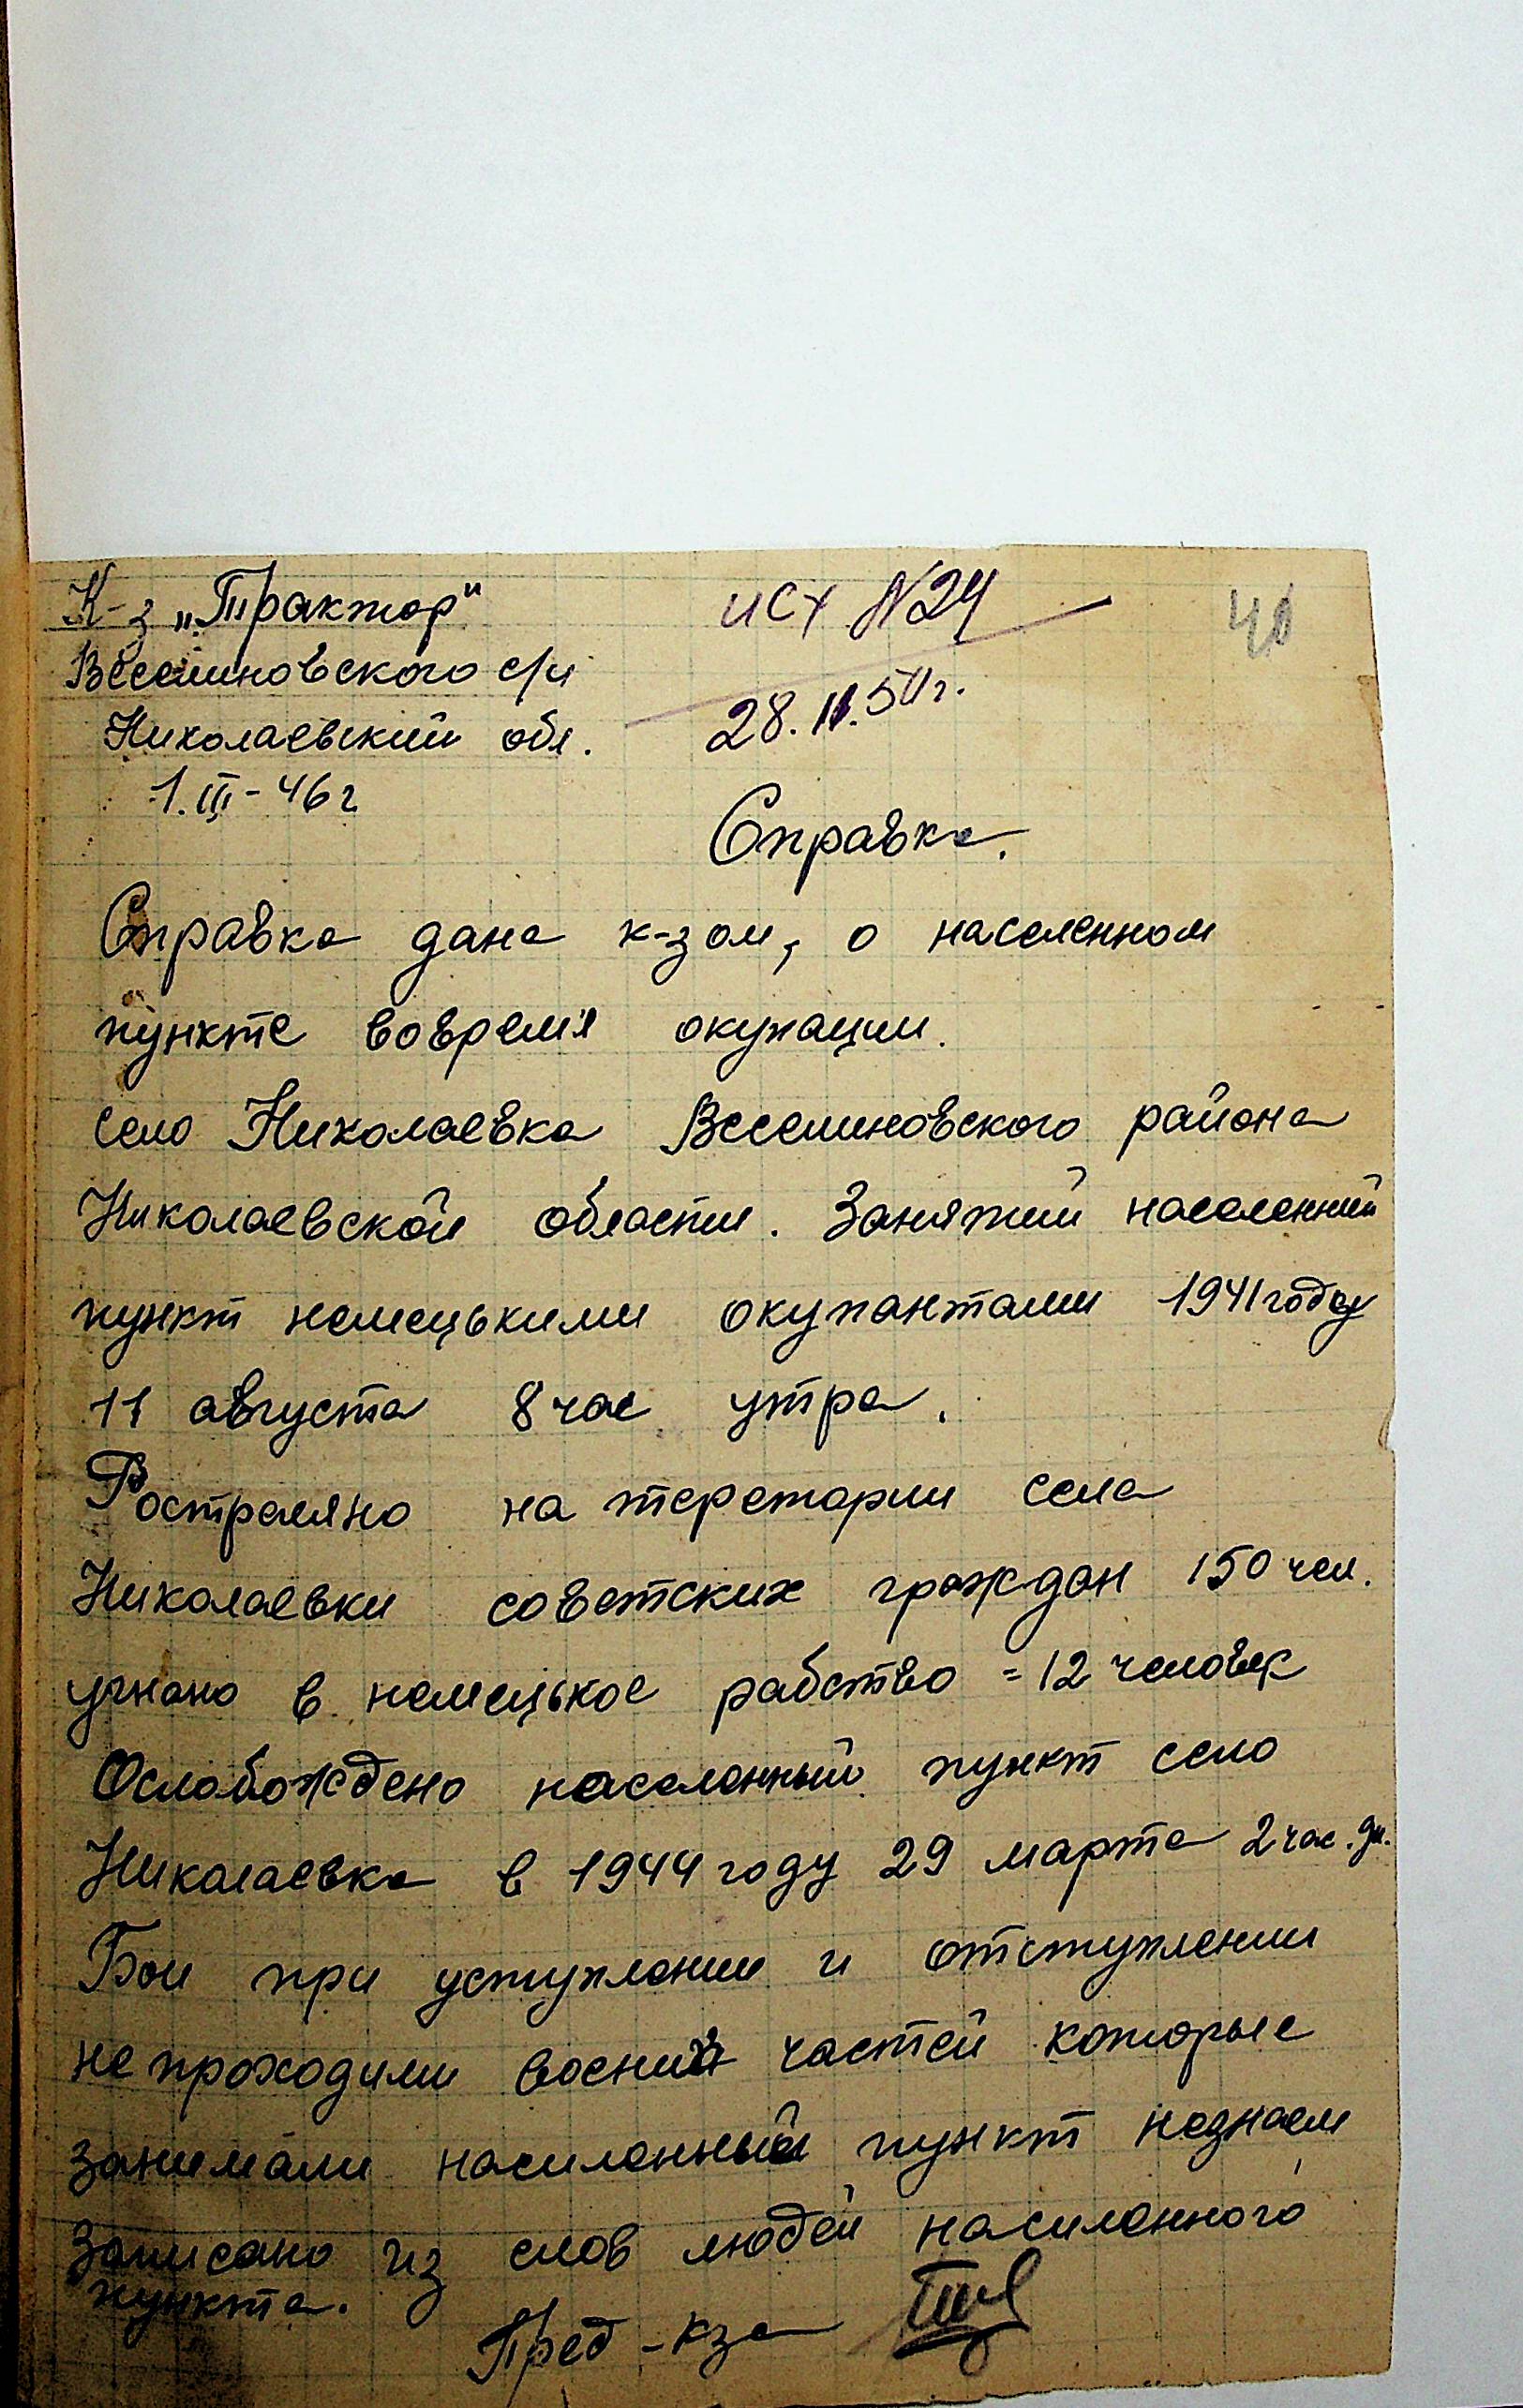 К-з „Трактор"
исх N24
40
Веселиновского с/и
28.II.5 г.
Николаевский обл.
1.III-46 г
Справка.
Справка дана к-зом, о населенном
пункте вовремя окупации.
село Николаевка Веселиновского района
Николаевской области. Занятий населенний
пункт немецькими окупантами 1941 году
11 августа 8 час утра.
Ростреляно на теретории села
Николаевки советских граждан 150 чел.
угнано в немецькое рабство = 12 человек
Ослобождено населенный пункт село
Николаевка в 1944 году 29 марта 2 час. дн.
Бои при уступлении и отступлении
не проходили частей которые
занимали насиленный пункт незнаем
Записано из слов людей насиленного
пункта.
Пред-кза